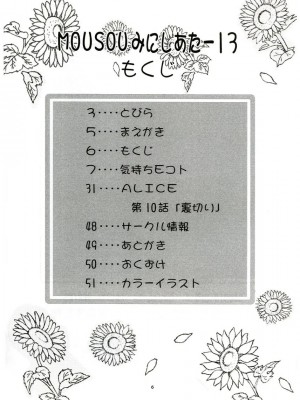 MOUSOUみにしあたー13
もくじ
3‥‥とびら
5‥‥まえがき
6‥‥もくじ
7‥‥気持ちEコト
31‥‥ALICE
第10話「裏切り」
48‥‥サークル情報
49‥‥あとがき
50‥‥おくづけ
51‥‥カラーイラスト